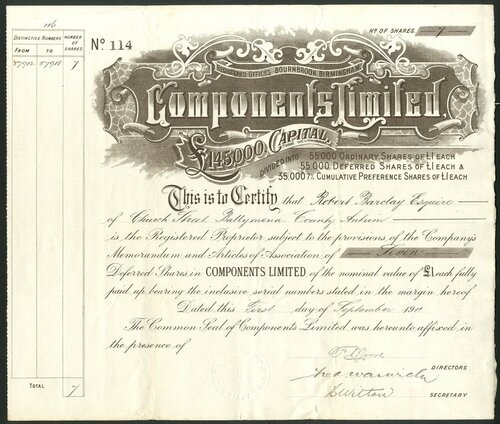 116
DISTINCTIVE NUMBERS NUMBER OF SHARES
FROM TO
57912 57918 7
TOTAL 7
No. 114
No OF SHARES 7
REGISTERED OFFICES BOURNBROOK, BIRMINGHAM
Components Limited.
£145,000, CAPITAL,
DIVIDED INTO 55,000 ORDINARY SHARES OF £1 EACH
55,000 DEFERRED SHARES OF £1 EACH &
35,000 7% CUMULATIVE PREFERENCE SHARES OF £1 EACH
This is to Certify that Robert Barclay Esquire
of Church Street Ballymena County Antrim
is the Registered Proprietor subject to the provisions of the Company's
Memorandum and Articles of Association of Seven
Deferred Shares in COMPONENTS LIMITED of the nominal value of £1 each fully
paid up bearing the inclusive serial numbers stated in the margin hereof
Dated this First day of September 1911
The Common Seal of Components Limited was hereunto affixed in
the presence of
DIRECTORS
SECRETARY